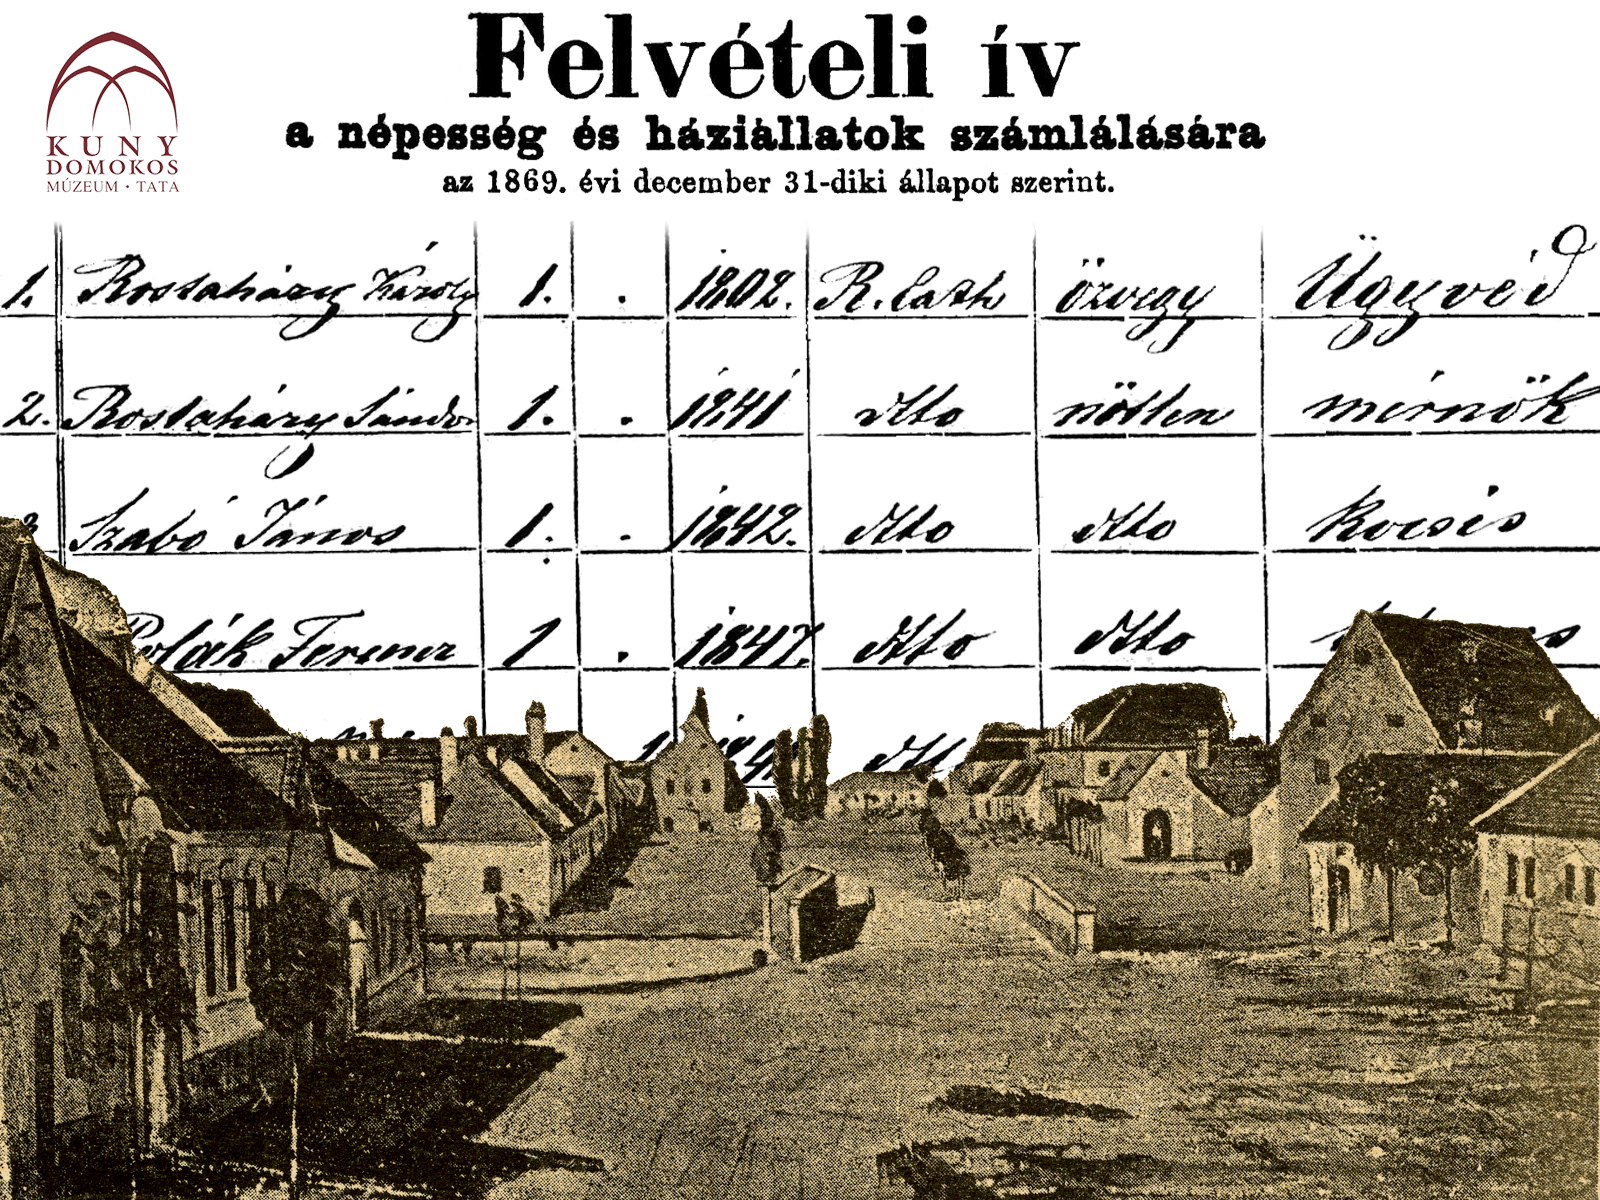 KUNY
DOMOKOS
MÚZEUM • TATA
Felvételi ív
a népesség és háziállatok számlálására
az 1869. évi december 31-diki állapot szerint.
1. Rostaházy Károly 1. . 1802. R. Cath özvegy Ügyvéd
2. Rostaházy Sándor 1. . 1841 dtto nőtlen mérnök
Szabó János 1. . 1842. dtto dtto Kocsis
Polák Ferenc 1 . 1847. dtto dtto